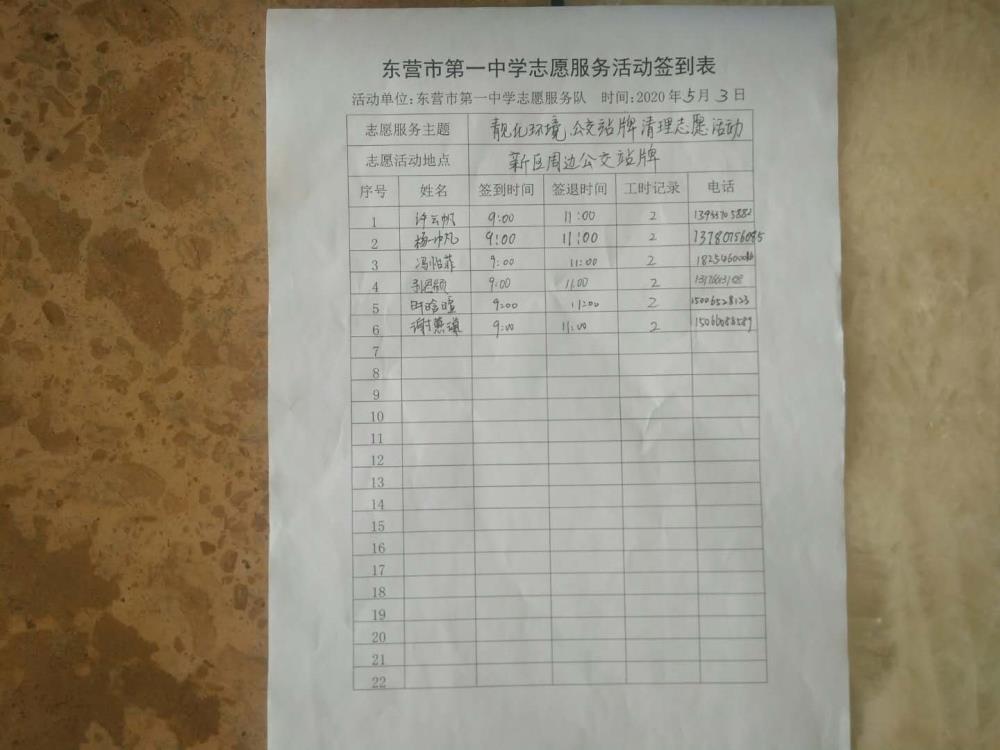 东营市第一中学志愿服务活动签到表
活动单位:东营市第一中学志愿服务队 时间:2020年5月3日
志愿服务主题 靓化环境,公交站牌清理志愿活动
志愿活动地点 新区周边公交站牌
序号 姓名 签到时间 签退时间 工时记录 电话
1 许云帆 9:00 11:00 2
2 杨帅凡 9:00 11:00 2 13780756085
3 冯怡菲 9:00 11:00 2
4 9:00 11:00 2
5 9:00 11:00 2 15006528123
6 9:00 11:00 2
7
8
9
10
11
12
13
14
15
16
17
18
19
20
21
22